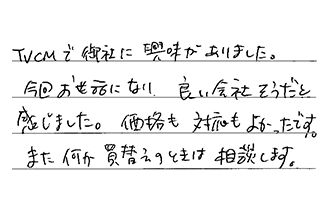 TVCMで御社に興味がありました。
今回お世話になり、良い会社そうだと
感じました。価格も対応もよかったです。
また何か買替えのときは相談します。